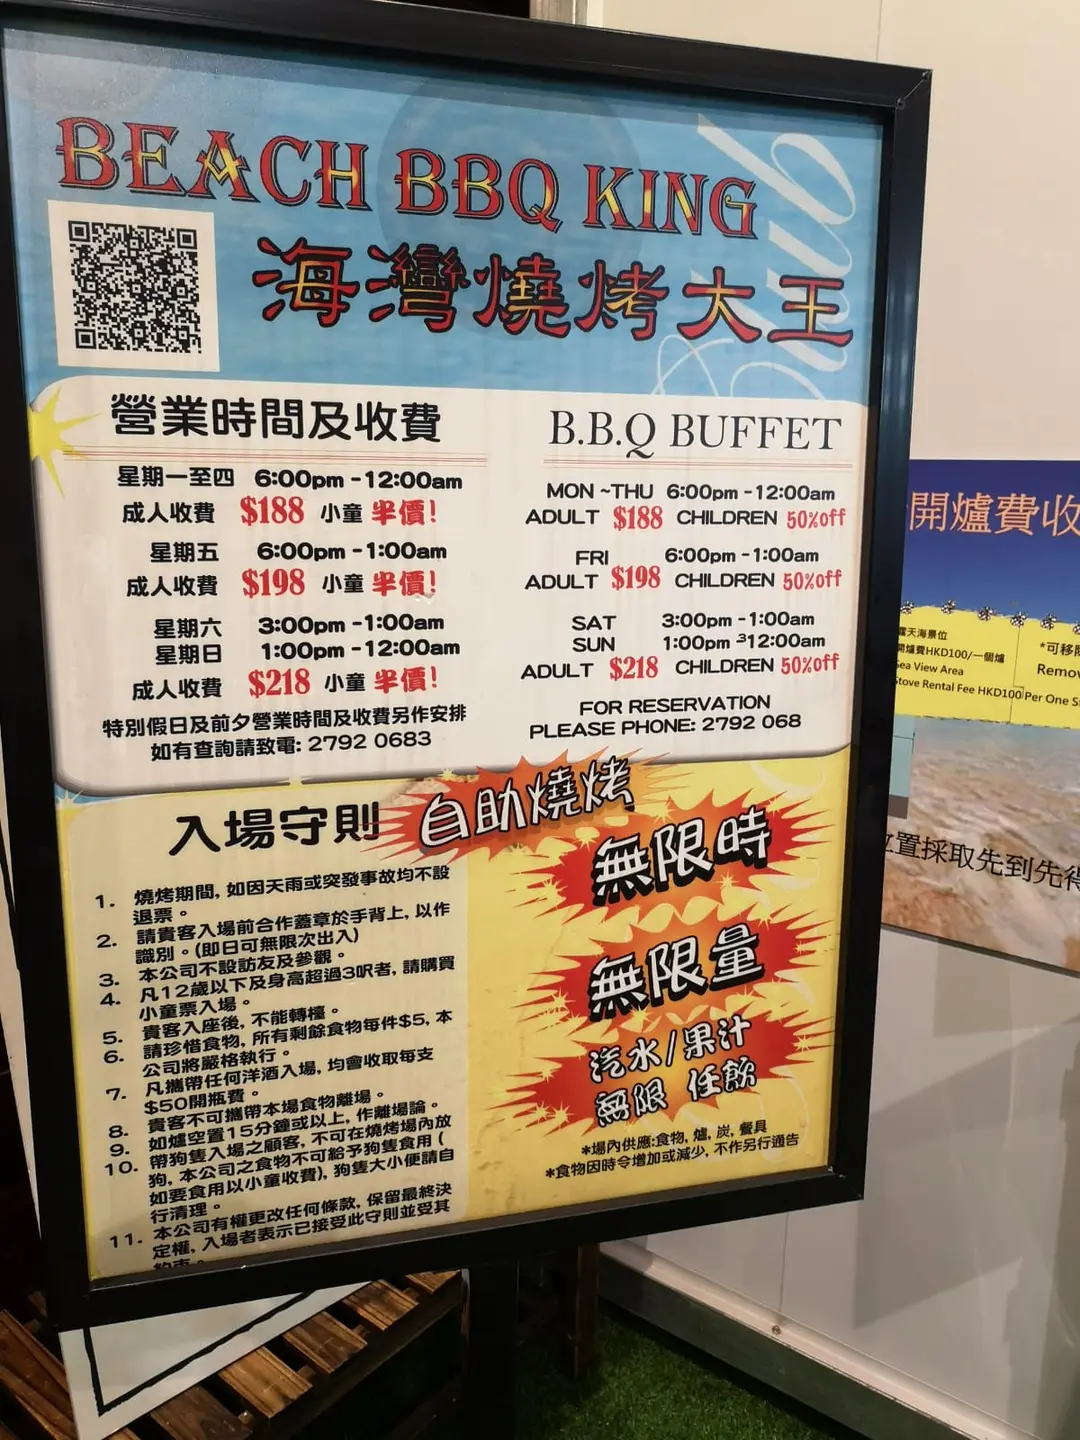 BEACH BBQ KING
海灣燒烤大王
營業時間及收費
星期一至四 6:00pm - 12:00am
成人收費 $188 小童 半價!
星期五 6:00pm - 1:00am
成人收費 $198 小童 半價!
星期六 3:00pm - 1:00am
星期日 1:00pm - 12:00am
成人收費 $218 小童 半價!
特別假日及前夕營業時間及收費另作安排
如有查詢請致電: 2792 0683
B.B.Q BUFFET
MON ~THU 6:00pm - 12:00am
ADULT $188 CHILDREN 50%off
FRI 6:00pm - 1:00am
ADULT $198 CHILDREN 50%off
SAT 3:00pm - 1:00am
SUN 1:00pm ³12:00am
ADULT $218 CHILDREN 50%off
FOR RESERVATION
PLEASE PHONE: 2792 068
入場守則
1. 燒烤期間, 如因天雨或突發事故均不設
退票。
2. 請貴客入場前合作蓋章於手背上, 以作
識別。(即日可無限次出入)
3. 本公司不設訪友及參觀。
4. 凡12歲以下及身高超過3呎者, 請購買
小童票入場。
5. 貴客入座後, 不能轉檯。
6. 請珍惜食物, 所有剩餘食物每件$5, 本
公司將嚴格執行。
7. 凡攜帶任何洋酒入場, 均會收取每支
$50開瓶費。
8. 貴客不可攜帶本場食物離場。
9. 如爐空置15分鐘或以上, 作離場論。
10. 帶狗隻入場之顧客, 不可在燒烤場內放
狗, 本公司之食物不可給予狗隻食用 (
如要食用以小童收費), 狗隻大小便請自
行清理。
11. 本公司有權更改任何條款, 保留最終決
定權, 入場者表示已接受此守則並受其
約束。
自助燒烤
無限時
無限量
汽水/果汁
無限 任飲
*場內供應:食物, 爐, 炭, 餐具
*食物因時令增加或減少, 不作另行通告
開爐費收
露天海景位
開爐費HKD100/一個爐
Sea View Area
Stove Rental Fee HKD100 Per One
*可移
Remov
位置採取先到先得